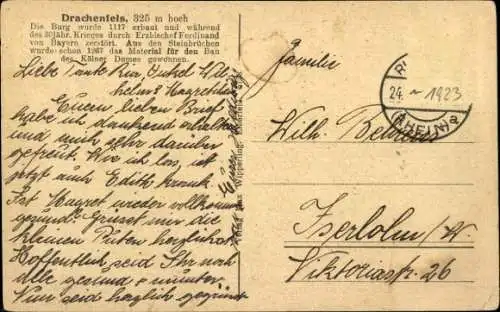 Drachenfels, 325 m hoch
Die Burg wurde 1117 erbaut und während
des 30jähr. Krieges durch Erzbischof Ferdinand
von Bayern zerstört. Aus den Steinbrüchen
wurde schon 1267 das Material für den Bau
des Kölner Domes gewonnen.
Liebe Tante Ria, Onkel Wil-
helm? Magretchen
Euren lieben Brief
habe ich dankend erhalten
und mich sehr darüber
gefreut. Wie ich las, ist
jetzt auch Edith krank.
Ist Magret wieder vollkommen
gesund? Grüsset mir die
kleinen Puten herzlich
Hoffentlich seid Ihr noch
alle gesund + munter.
Nun seid herzlich gegrüsst
Familie
Wilh.
Iserlohn/W.
Viktoriastr. 26
24. 1923
(RHEIN) a